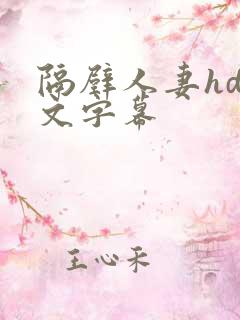 隔壁人妻hd
文字幕
王心禾